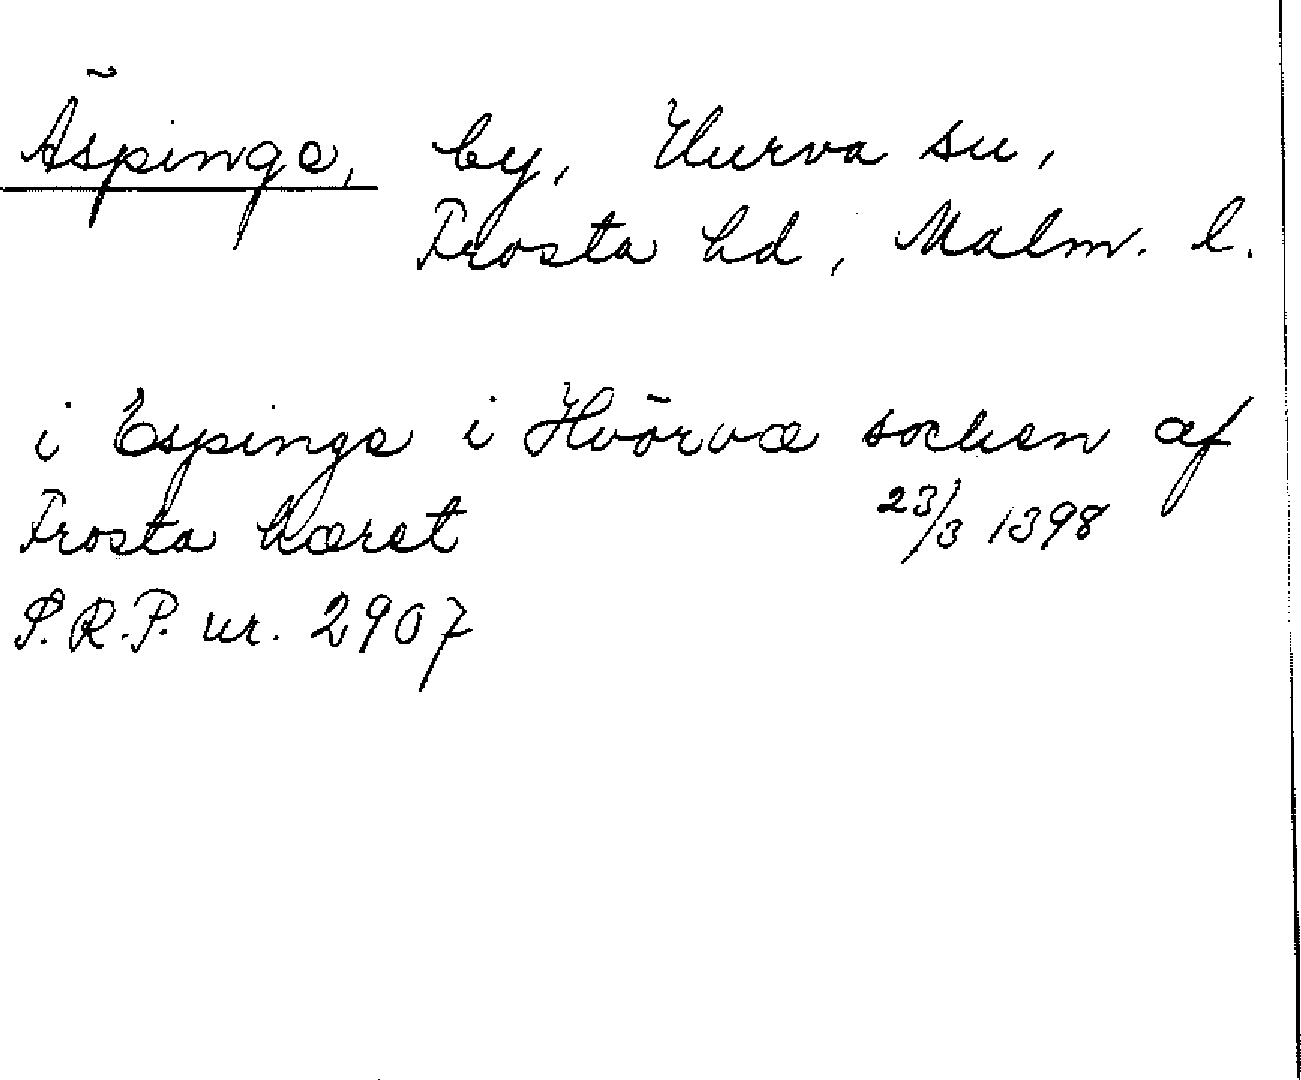 Äspinge, by, Hurva sn,
Frosta hd, Malm. l.
i Espinge i Hvörvæ sochen af
Frosta hæret 23/3 1398
S.R.P. nr. 2907